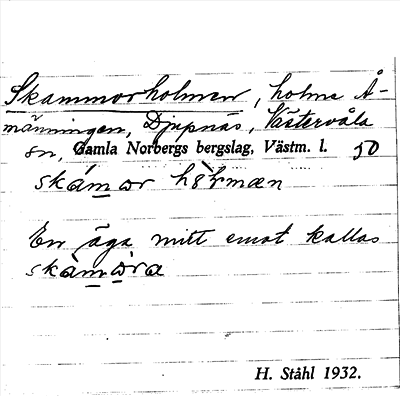 Skammorholmen, holme Å-
männingen, Djupnäs, Västervåla
sn, Gamla Norbergs bergslag, Västm. l. 50
skámor hòlmæn
En äga mitt emot kallas
skàmòra
H. Ståhl 1932.